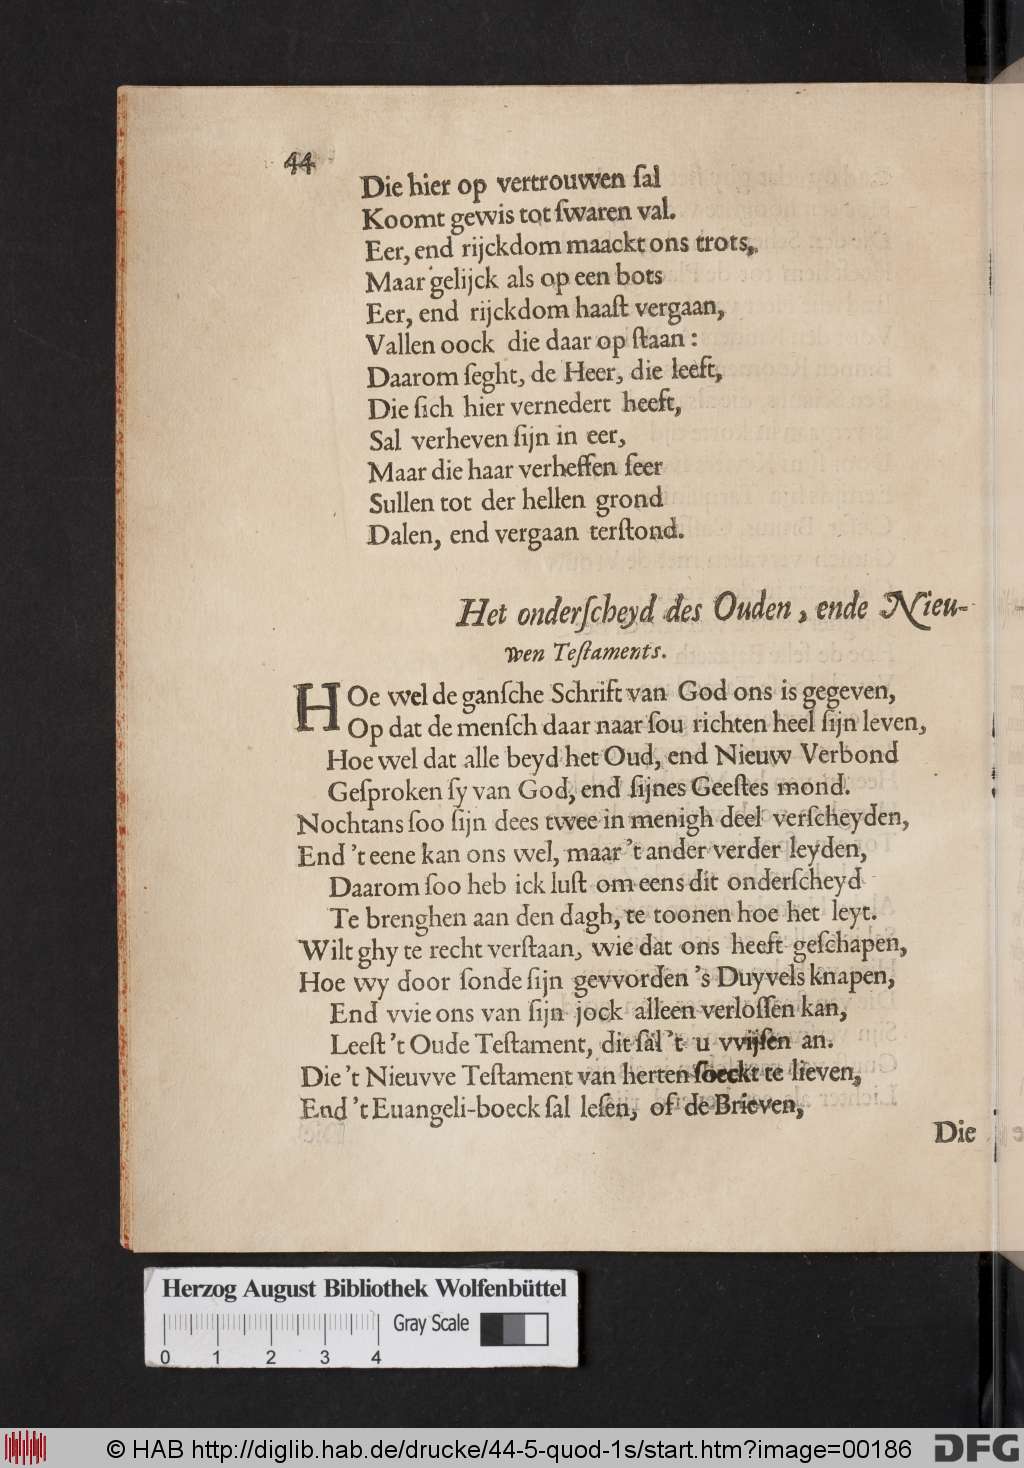 44
Die hier op vertrouwen ſal
Koomt gewis tot ſwaren val.
Eer, end rijckdom maackt ons trots,
Maar gelijck als op een bots
Eer, end rijckdom haaſt vergaan,
Vallen oock die daar op ſtaan:
Daarom ſeght, de Heer, die leeft,
Die ſich hier vernedert heeft,
Sal verheven ſijn in eer,
Maar die haar verheffen ſeer
Sullen tot der hellen grond
Dalen, end vergaan terſtond.
Het onderſcheyd des Ouden, ende Nieu-
wen Teſtaments.
HOe wel de ganſche Schrift van God ons is gegeven,
Op dat de menſch daar naar ſou richten heel ſijn leven,
Hoe wel dat alle beyd het Oud, end Nieuw Verbond
Geſproken ſy van God, end ſijnes Geeſtes mond.
Nochtans ſoo ſijn dees twee in menigh deel verſcheyden,
End 't eene kan ons wel, maar 't ander verder leyden,
Daarom ſoo heb ick luſt om eens dit onderſcheyd
Te brenghen aan den dagh, te toonen hoe het leyt.
Wilt ghy te recht verſtaan, wie dat ons heeft geſchapen,
Hoe wy door ſonde ſijn gevvorden 's Duyvels knapen,
End vvie ons van ſijn jock alleen verloſſen kan,
Leeſt 't Oude Teſtament, dit ſal 't u vvijſen an.
Die 't Nieuvve Teſtament van herten ſoeckt te lieven,
End 't Euangeli-boeck ſal leſen, of de Brieven,
Die
Herzog August Bibliothek Wolfenbüttel
Gray Scale
0 1 2 3 4
© HAB http://diglib.hab.de/drucke/44-5-quod-1s/start.htm?image=00186
DFG